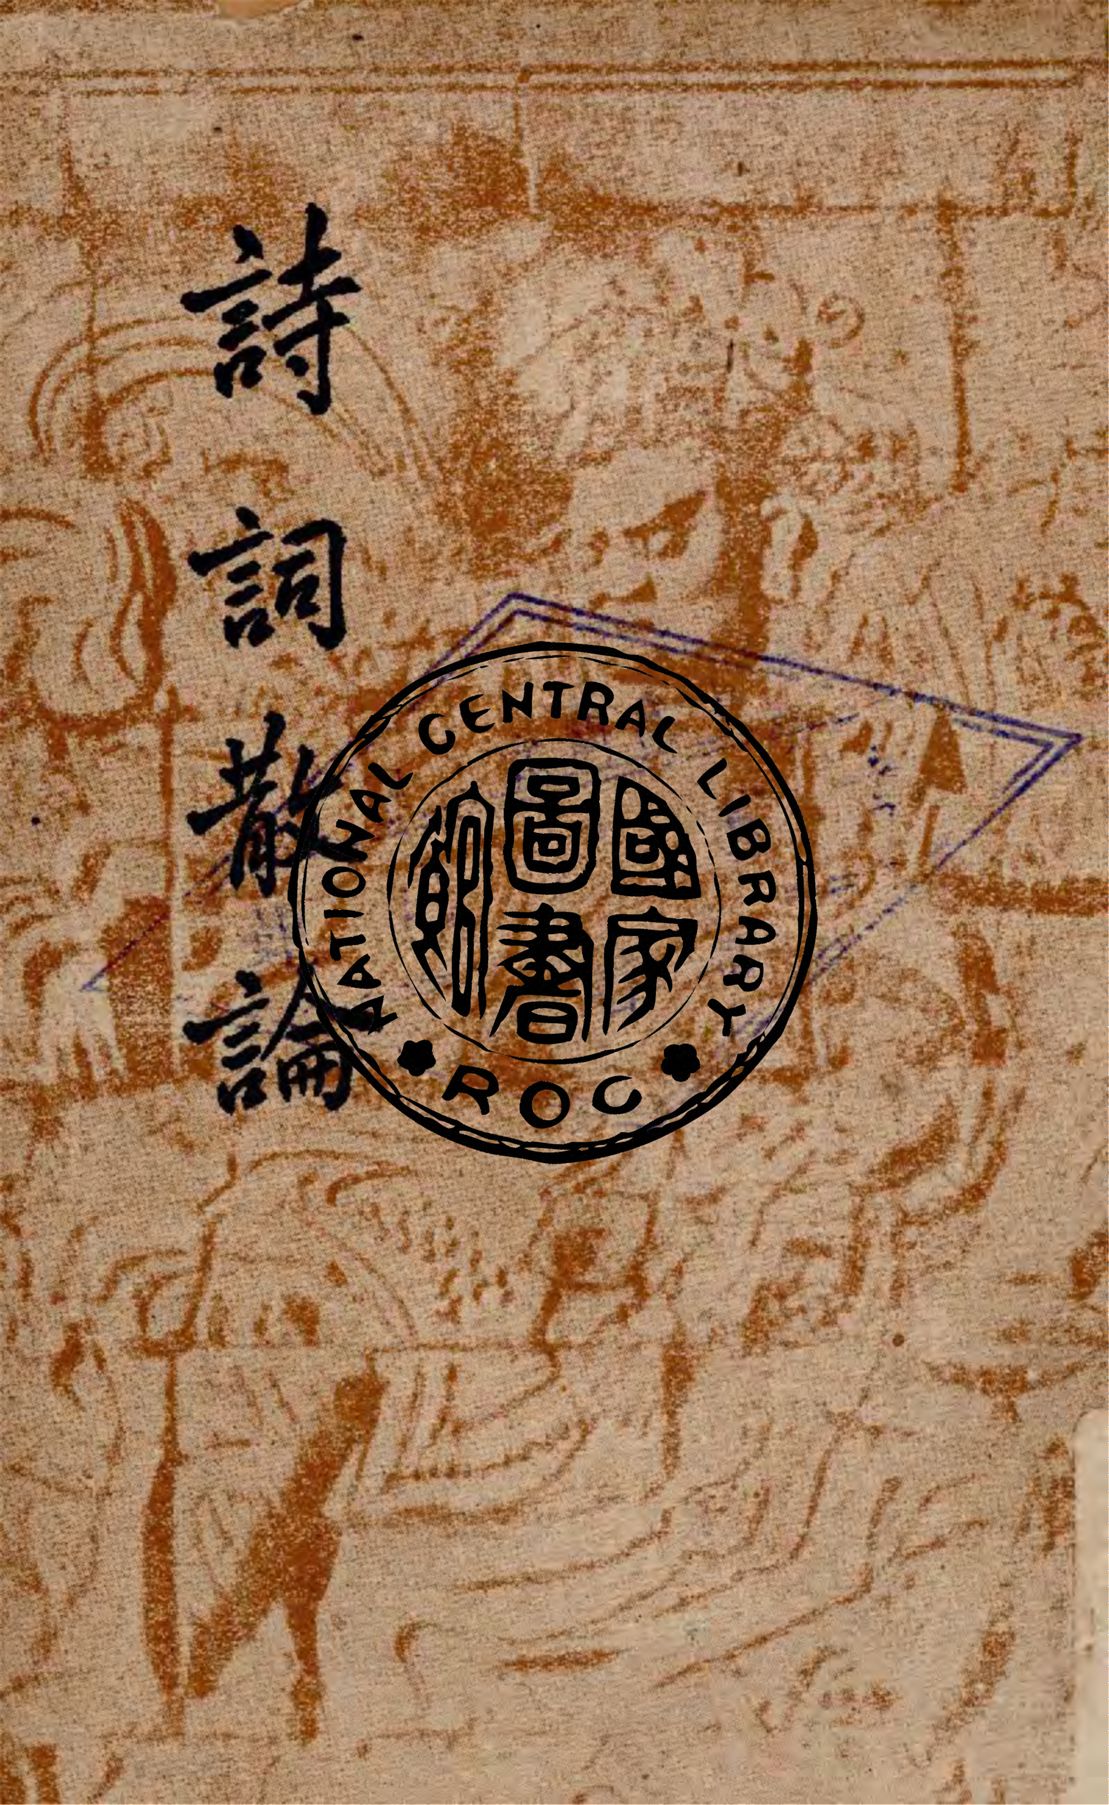 詩詞散論
NATIONAL CENTRAL LIBRARY
國家
圖書
館
ROC